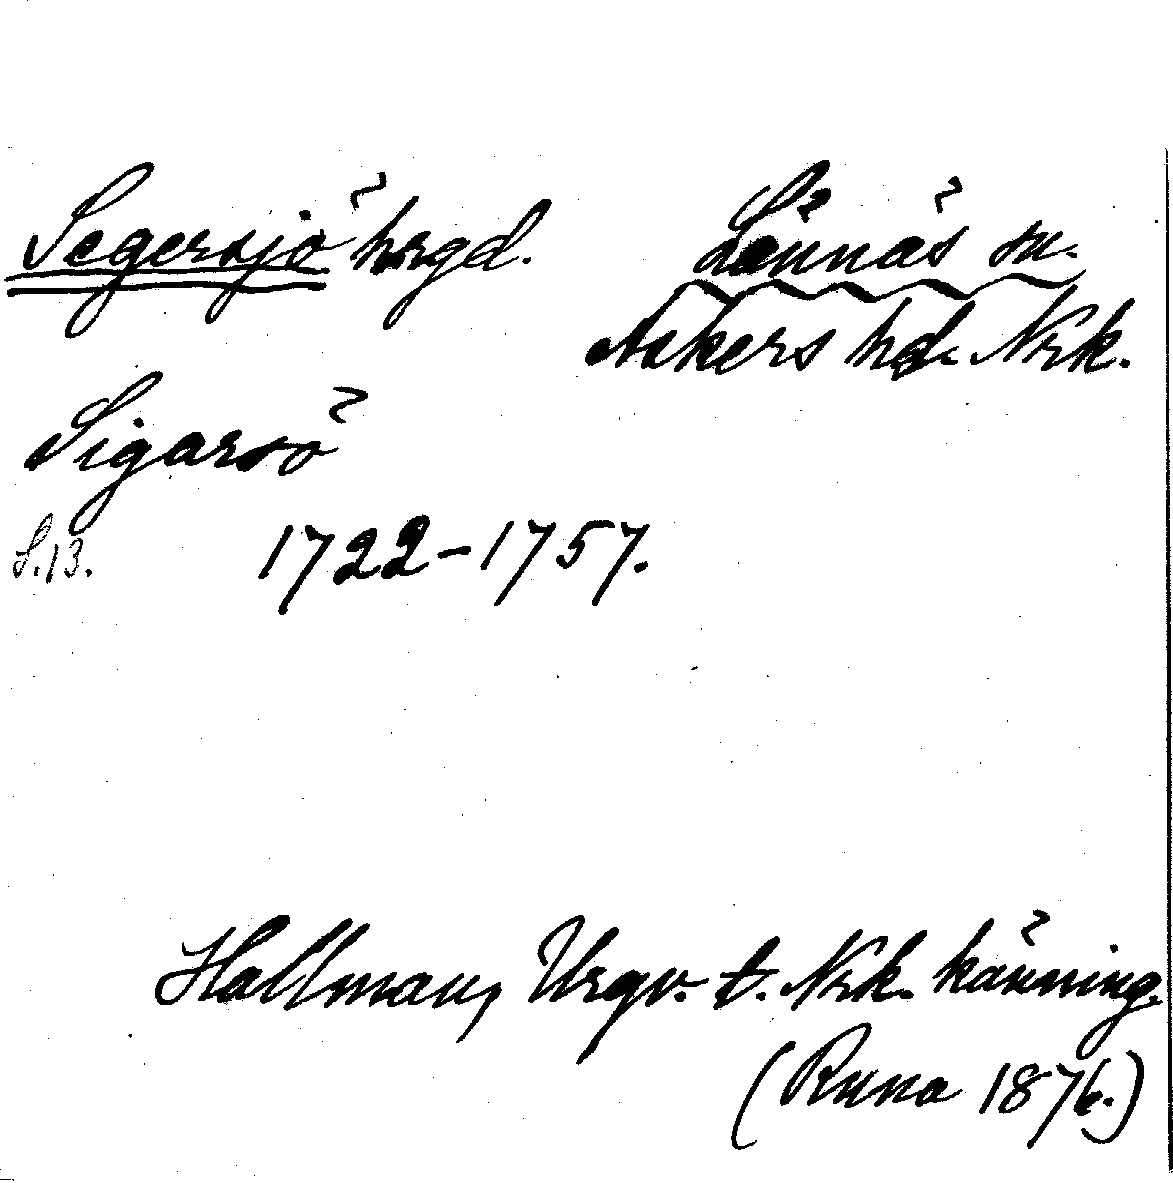 Segersjö hrgd. Lännäs sn.
Askers hd. Nrk.
Sigarsö
S. 13. 1722-1757.
Hallman, Urgv. t. Nrk. känning.
(Runa 1876.)